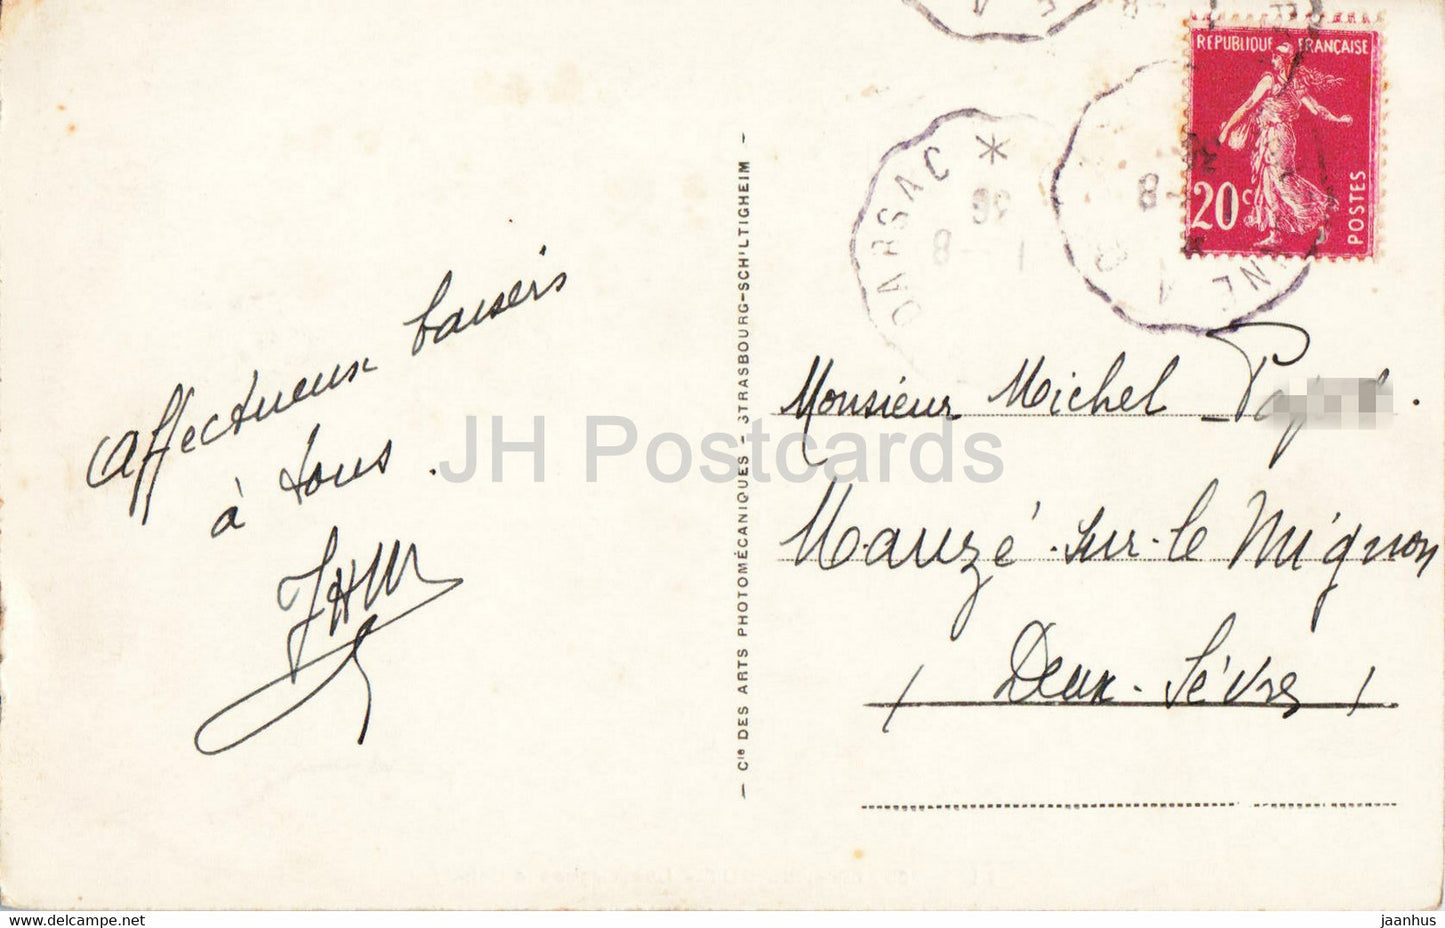 RÉPUBLIQUE FRANÇAISE
20c
POSTES
DARSAC *
36
1 - 8
8
Affectueux baisers
à tous .
JHM
Monsieur Michel
Mauzé-sur-le Mignon
( Deux-Sèvres )
— Cie DES ARTS PHOTOMÉCANIQUES - STRASBOURG-SCHILTIGHEIM —
JH Postcards
www.delcampe.net
jaanhus